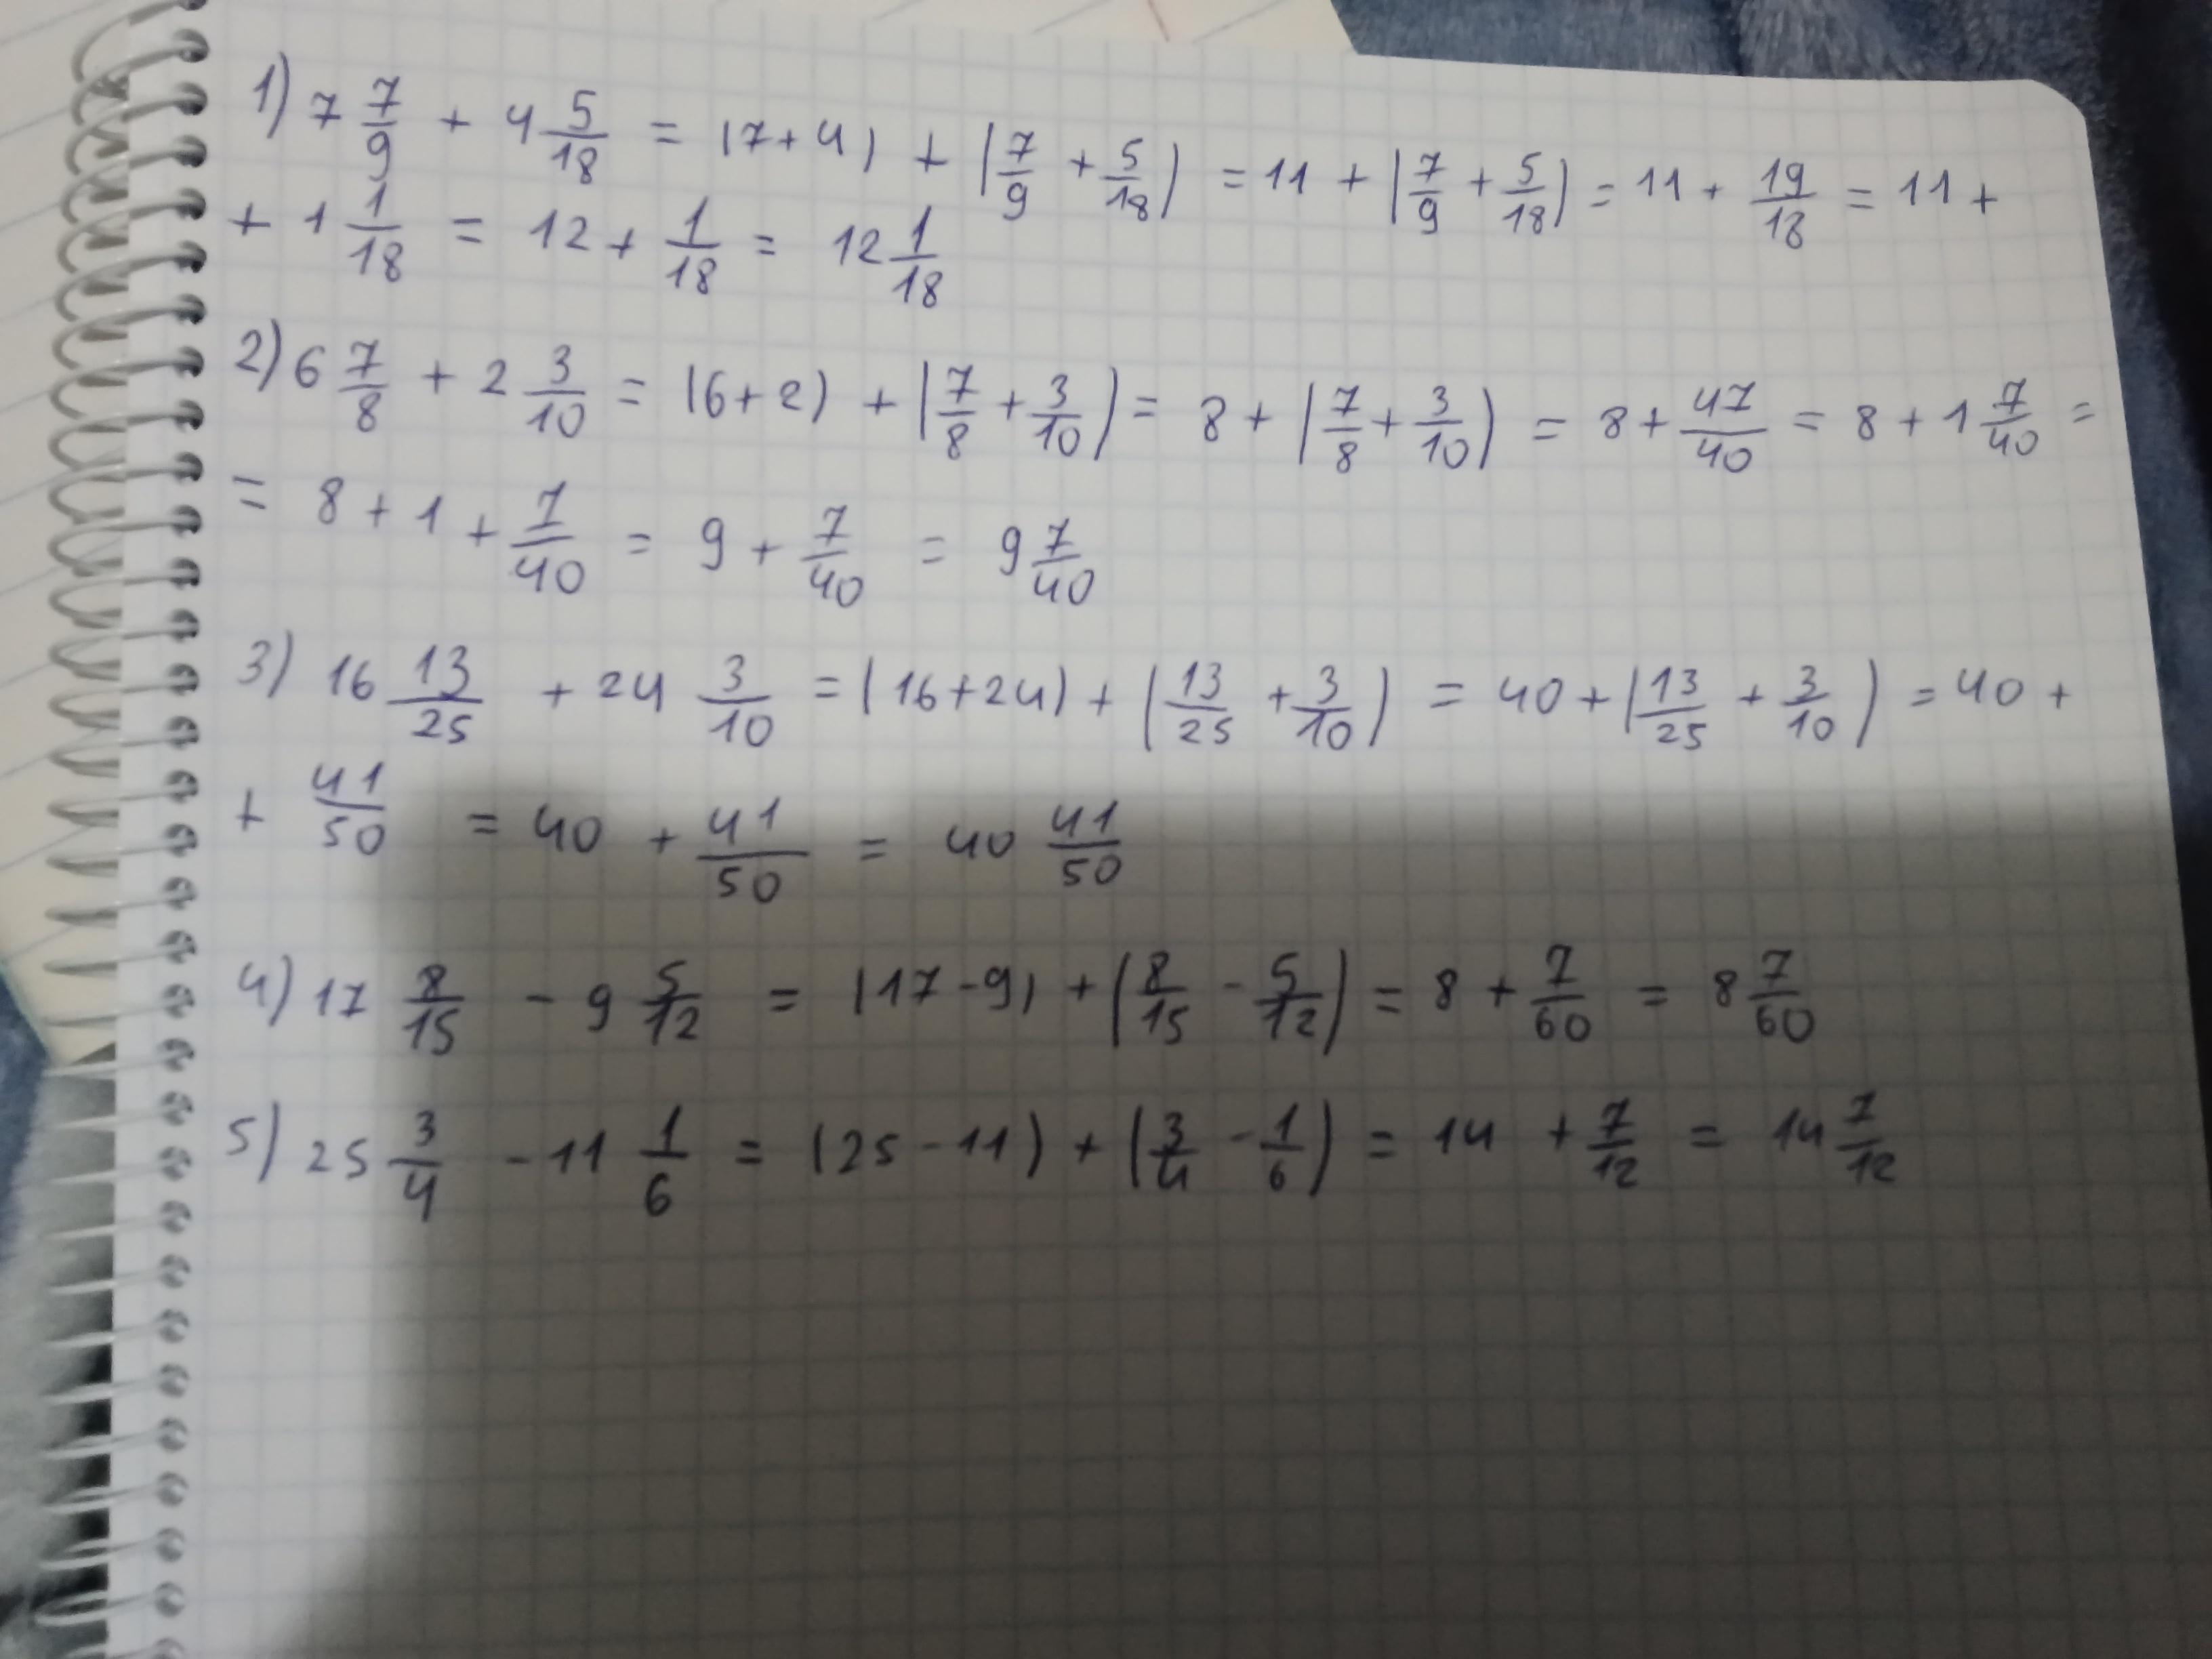 1) 7 7/9 + 4 5/18 = (7+4) + (7/9 + 5/18) = 11 + (7/9 + 5/18) = 11 + 19/18 = 11 +
+ 1 1/18 = 12 + 1/18 = 12 1/18
2) 6 7/8 + 2 3/10 = (6+2) + (7/8 + 3/10) = 8 + (7/8 + 3/10) = 8 + 47/40 = 8 + 1 7/40 =
= 8 + 1 + 7/40 = 9 + 7/40 = 9 7/40
3) 16 13/25 + 24 3/10 = (16+24) + (13/25 + 3/10) = 40 + (13/25 + 3/10) = 40 +
+ 41/50 = 40 + 41/50 = 40 41/50
4) 17 8/15 - 9 5/12 = (17-9) + (8/15 - 5/12) = 8 + 7/60 = 8 7/60
5) 25 3/4 - 11 1/6 = (25-11) + (3/4 - 1/6) = 14 + 7/12 = 14 7/12